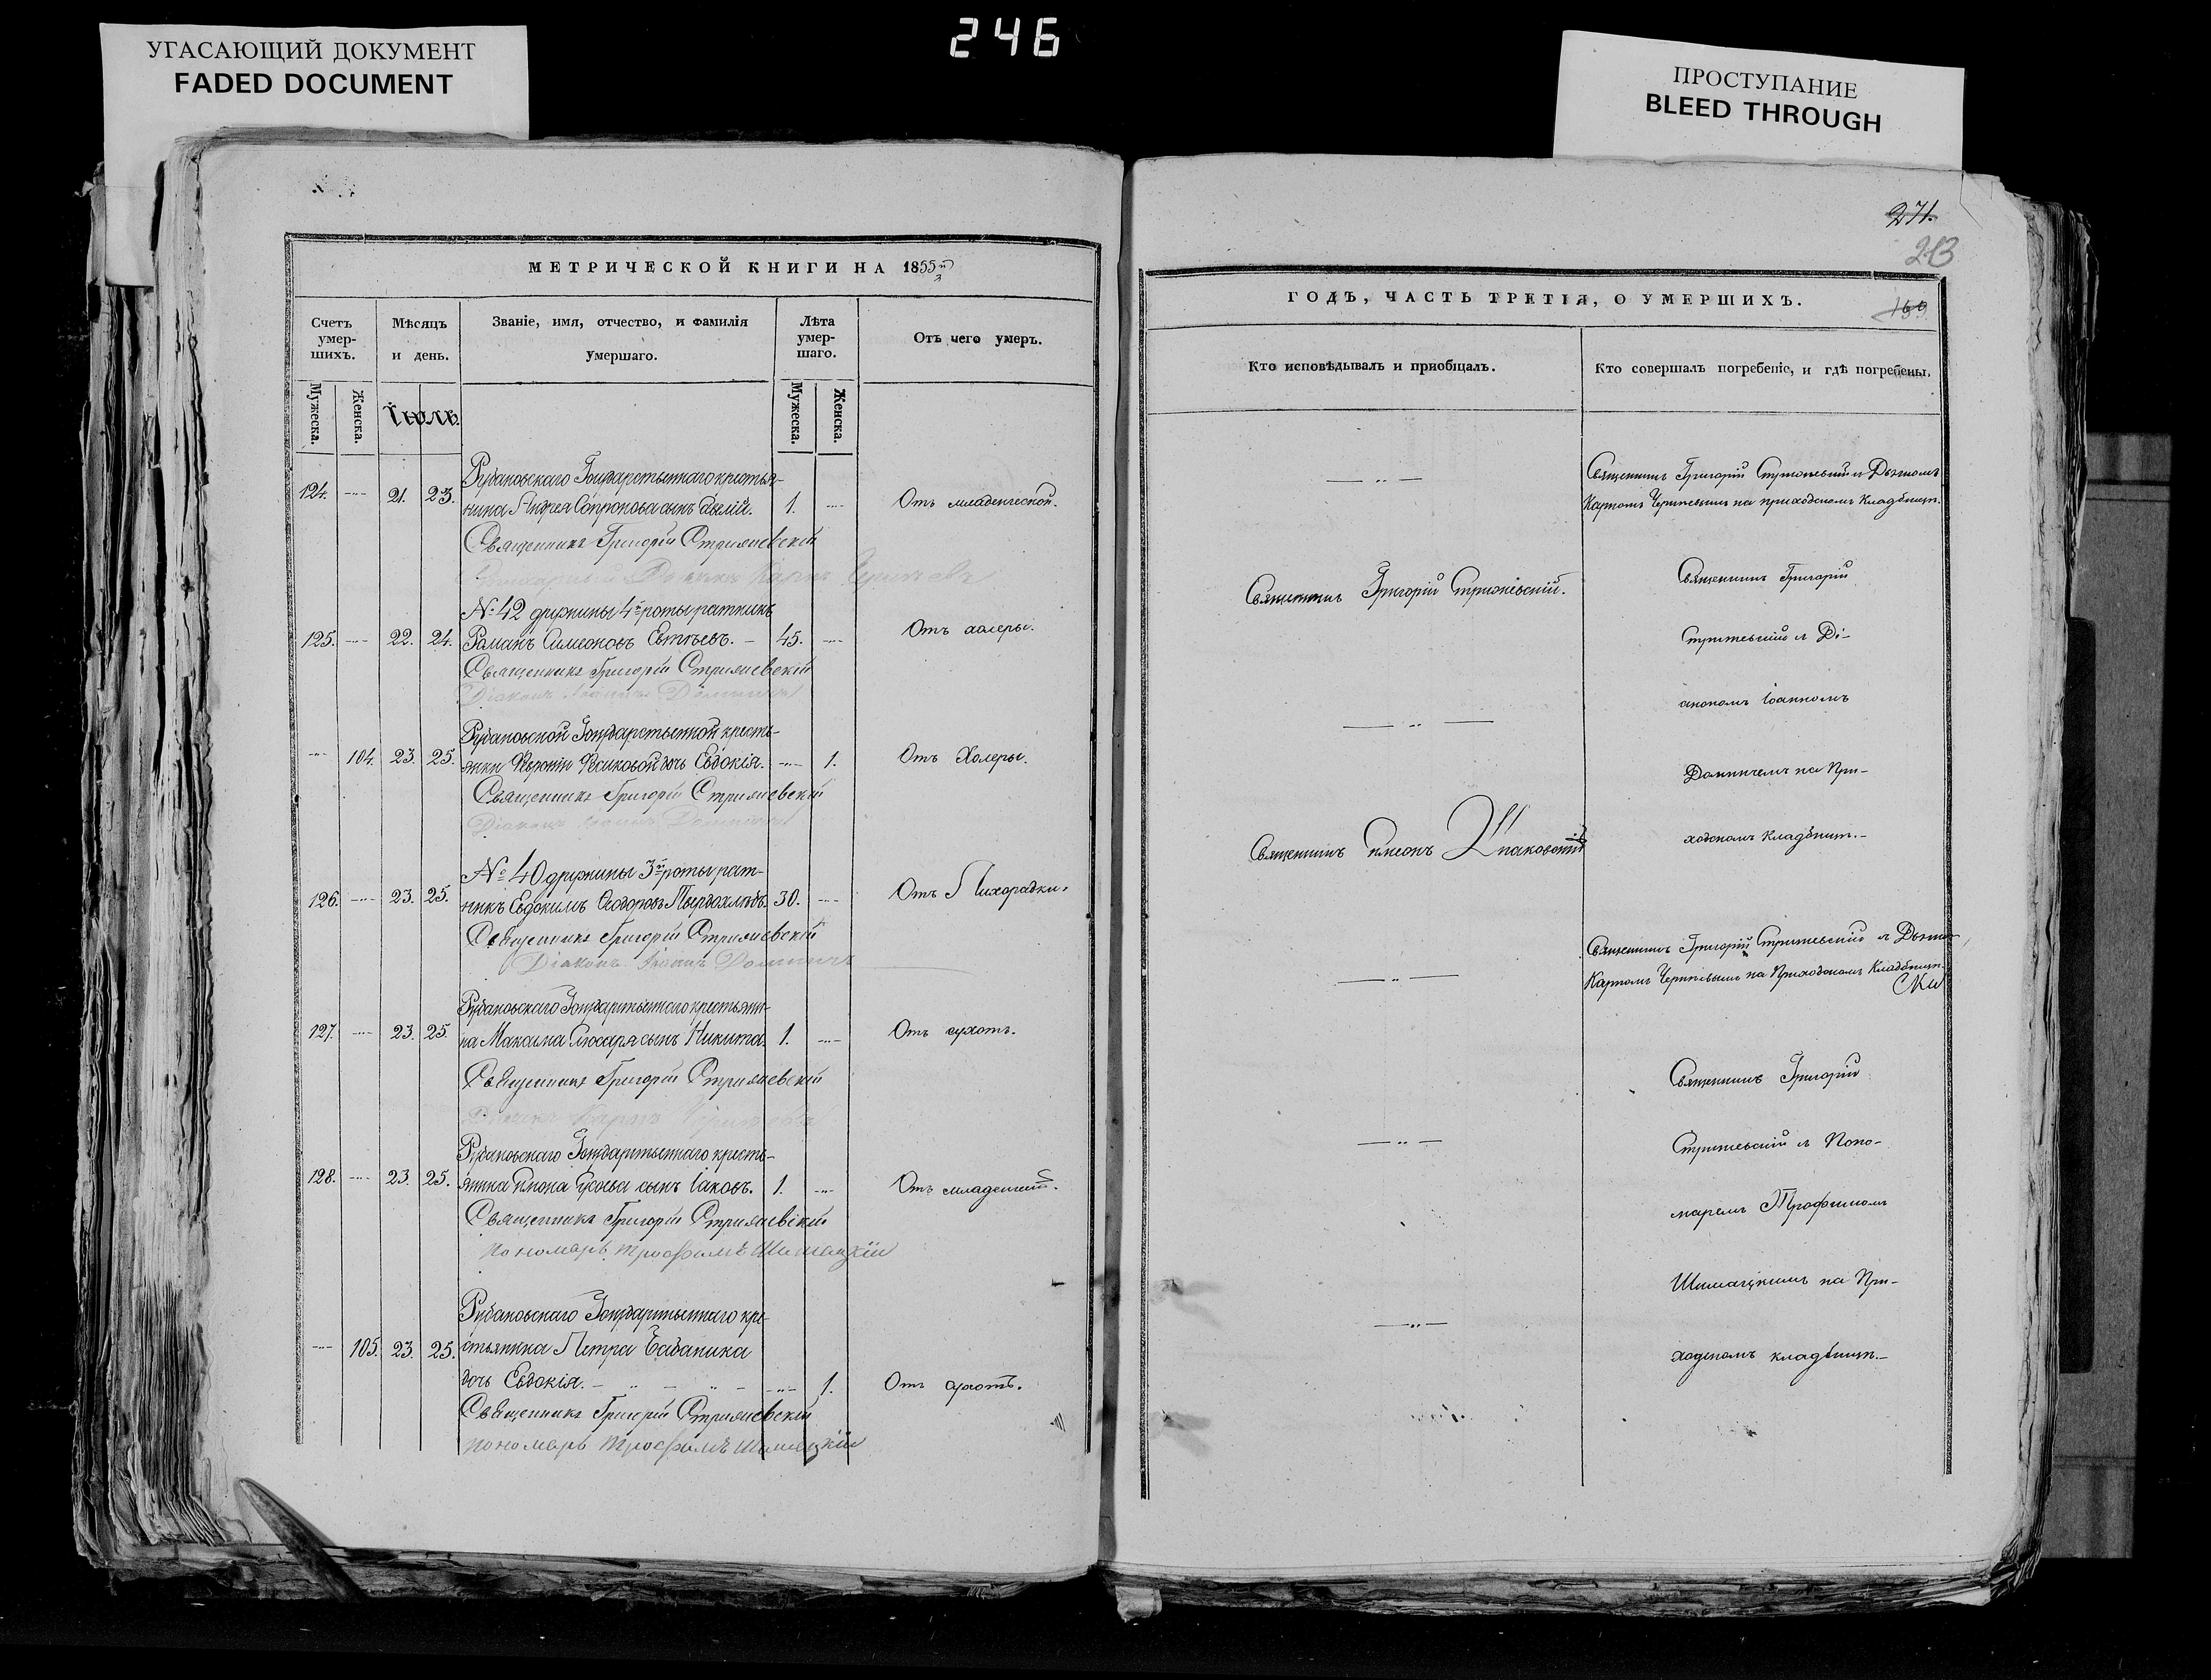 246
УГАСАЮЩИЙ ДОКУМЕНТ
FADED DOCUMENT
ПРОСТУПАНИЕ
BLEED THROUGH
МЕТРИЧЕСКОЙ КНИГИ НА 1855й
Счетъ умер-шихъ.
Мѣсяцъ и день.
Званіе, имя, отчество, и фамилія умершаго.
Лѣта умер-шаго.
Отъ чего умеръ.
Мужеска.
Женска.
Іюль.
Мужеска.
Женска.
Рубановскаго Государственнаго крестья-
124. 21. 23. нина Андрея сынъ 1. Отъ младенческой.
Священникъ Григорій Стрижевскій
№ 42 дружины 4й роты ратникъ
125. 22. 24. Романъ Симеоновъ 45. Отъ холеры.
Священникъ Григорій Стрижевскій
Діаконъ Іоаннъ
Рубановской Государственной кресть-
104. 23. 25. янки дочь Евдокія. 1. Отъ Холеры.
Священникъ Григорій Стрижевскій
Діаконъ Іоаннъ
№ 40 дружины 3й роты рат-
126. 23. 25. никъ Евдокимъ Ѳеодоровъ Твердохлѣбъ. 30. Отъ Лихорадки.
Священникъ Григорій Стрижевскій
Діаконъ Іоаннъ
Рубановскаго Государственнаго крестьяни-
127. 23. 25. на Максима Слюсаря сынъ Никита. 1. Отъ сухотъ.
Священникъ Григорій Стрижевскій
Рубановскаго Государственнаго кресть-
128. 23. 25. янина сынъ Іаковъ. 1. Отъ
Священникъ Григорій Стрижевскій
пономарь Трофимъ Шимацкій
Рубановскаго Государственнаго кре-
105. 23. 25. стьянина Петра Бабаника
дочь Евдокія. 1. Отъ сухотъ.
Священникъ Григорій Стрижевскій
пономарь Трофимъ Шимацкій
271.
213
169
ГОДЪ, ЧАСТЬ ТРЕТІЯ, О УМЕРШИХЪ.
Кто исповѣдывалъ и пріобщалъ.
Кто совершалъ погребеніе, и гдѣ погребены.
Священникъ Григорій Стрижевскій и Дьячкомъ
Карпомъ на приходскомъ Кладбищѣ.
Священникъ Григорій Стрижевскій.
Священникъ Григорій
Стрижевскій и Ді-
акономъ Іоанномъ
на При-
ходскомъ кладбищѣ.-
Священникъ Симеонъ
Священникъ Григорій Стрижевскій и
Карпомъ на Приходскомъ Кладбищѣ.
Священникъ Григорій
Стрижевскій и Поно-
маремъ Трофимомъ
Шимацкимъ на При-
ходскомъ кладбищѣ.-